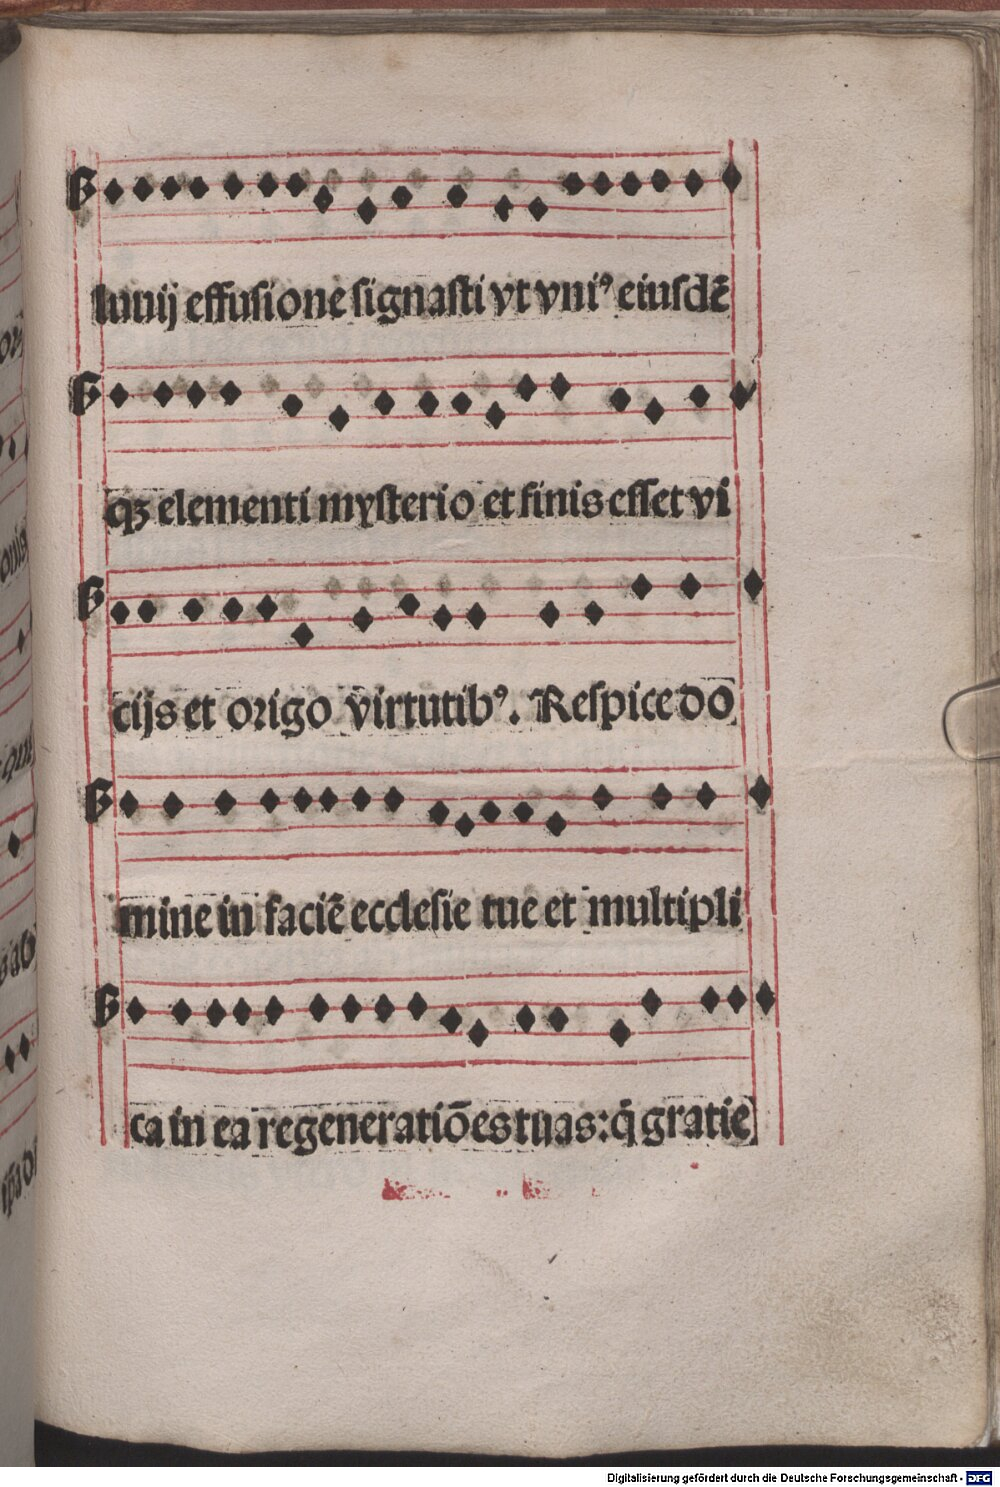 luuij effusione signasti vt vniꝰ eiusdē
qꝫ elementi mysterio et finis esset vi
cijs et origo virtutibꝰ. Respice do
mine in faciē ecclesie tue et multipli
ca in ea regeneratiōes tuas: q̄ gratie
Digitalisierung gefördert durch die Deutsche Forschungsgemeinschaft - DFG